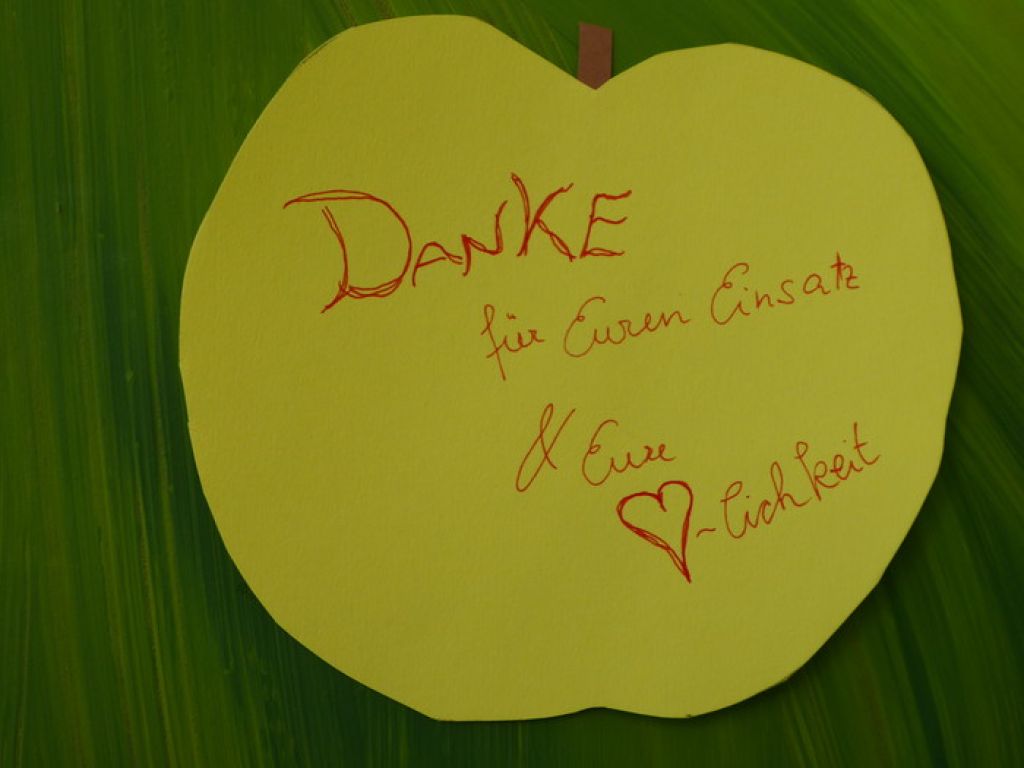 DANKE
für Euren Einsatz
& Eure
♡~lichkeit